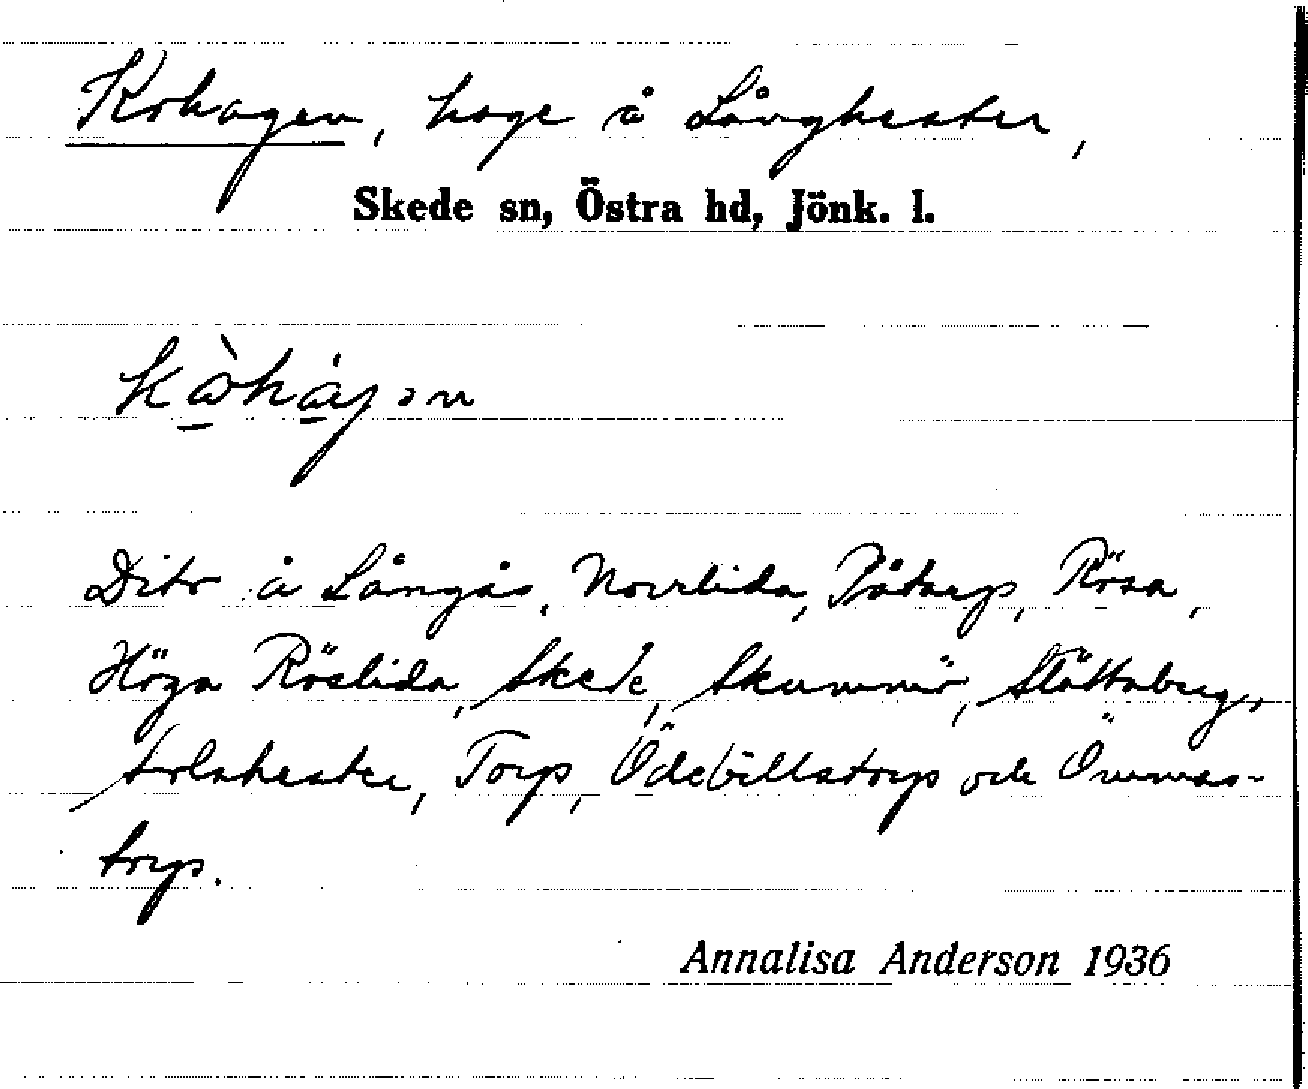 Kohagen, hage å Långhester,
Skede sn, Östra hd, Jönk. l.
Dito å Långås, Norrlida, Råtorp, Rösa,
Höga Röslida, Skede, Skummö, Slättaberg,
Torp, Ödebillstorp och Ömmes-
torp.
Annalisa Anderson 1936